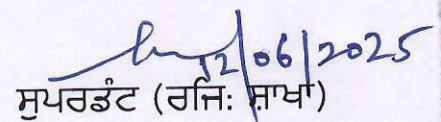 12/06/2025
ਸੁਪਰਡੰਟ (ਰਜਿ: ਸ਼ਾਖਾ)